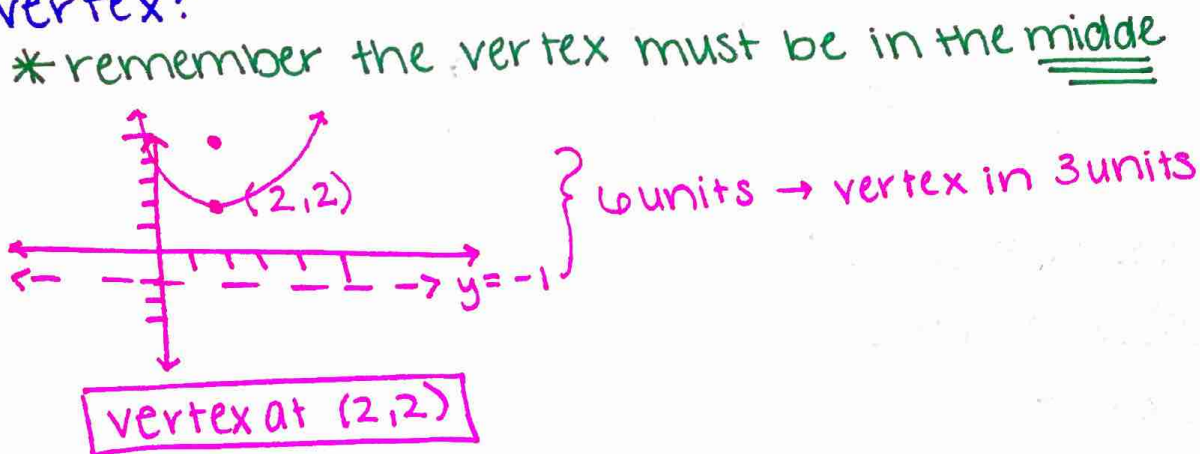 vertex?
* remember the vertex must be in the midde
(2,2)
} 6 units → vertex in 3 units
y = -1
vertex at (2,2)